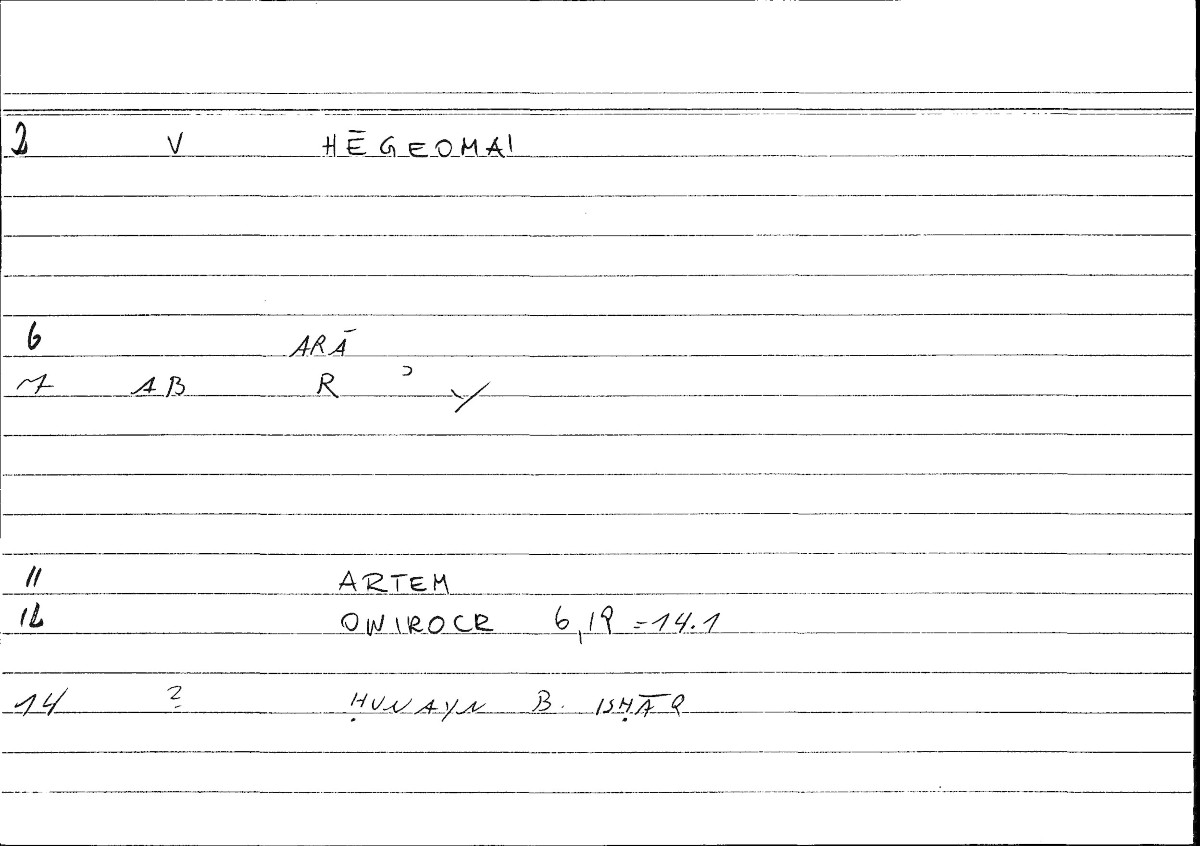 2 V HĒGEOMAI
6 ARĀ
7 AB R ʾ Y
11 ARTEM
12 ONIROCR 6,19 = 14.1
14 ? ḤUNAYN B. ISḤĀQ